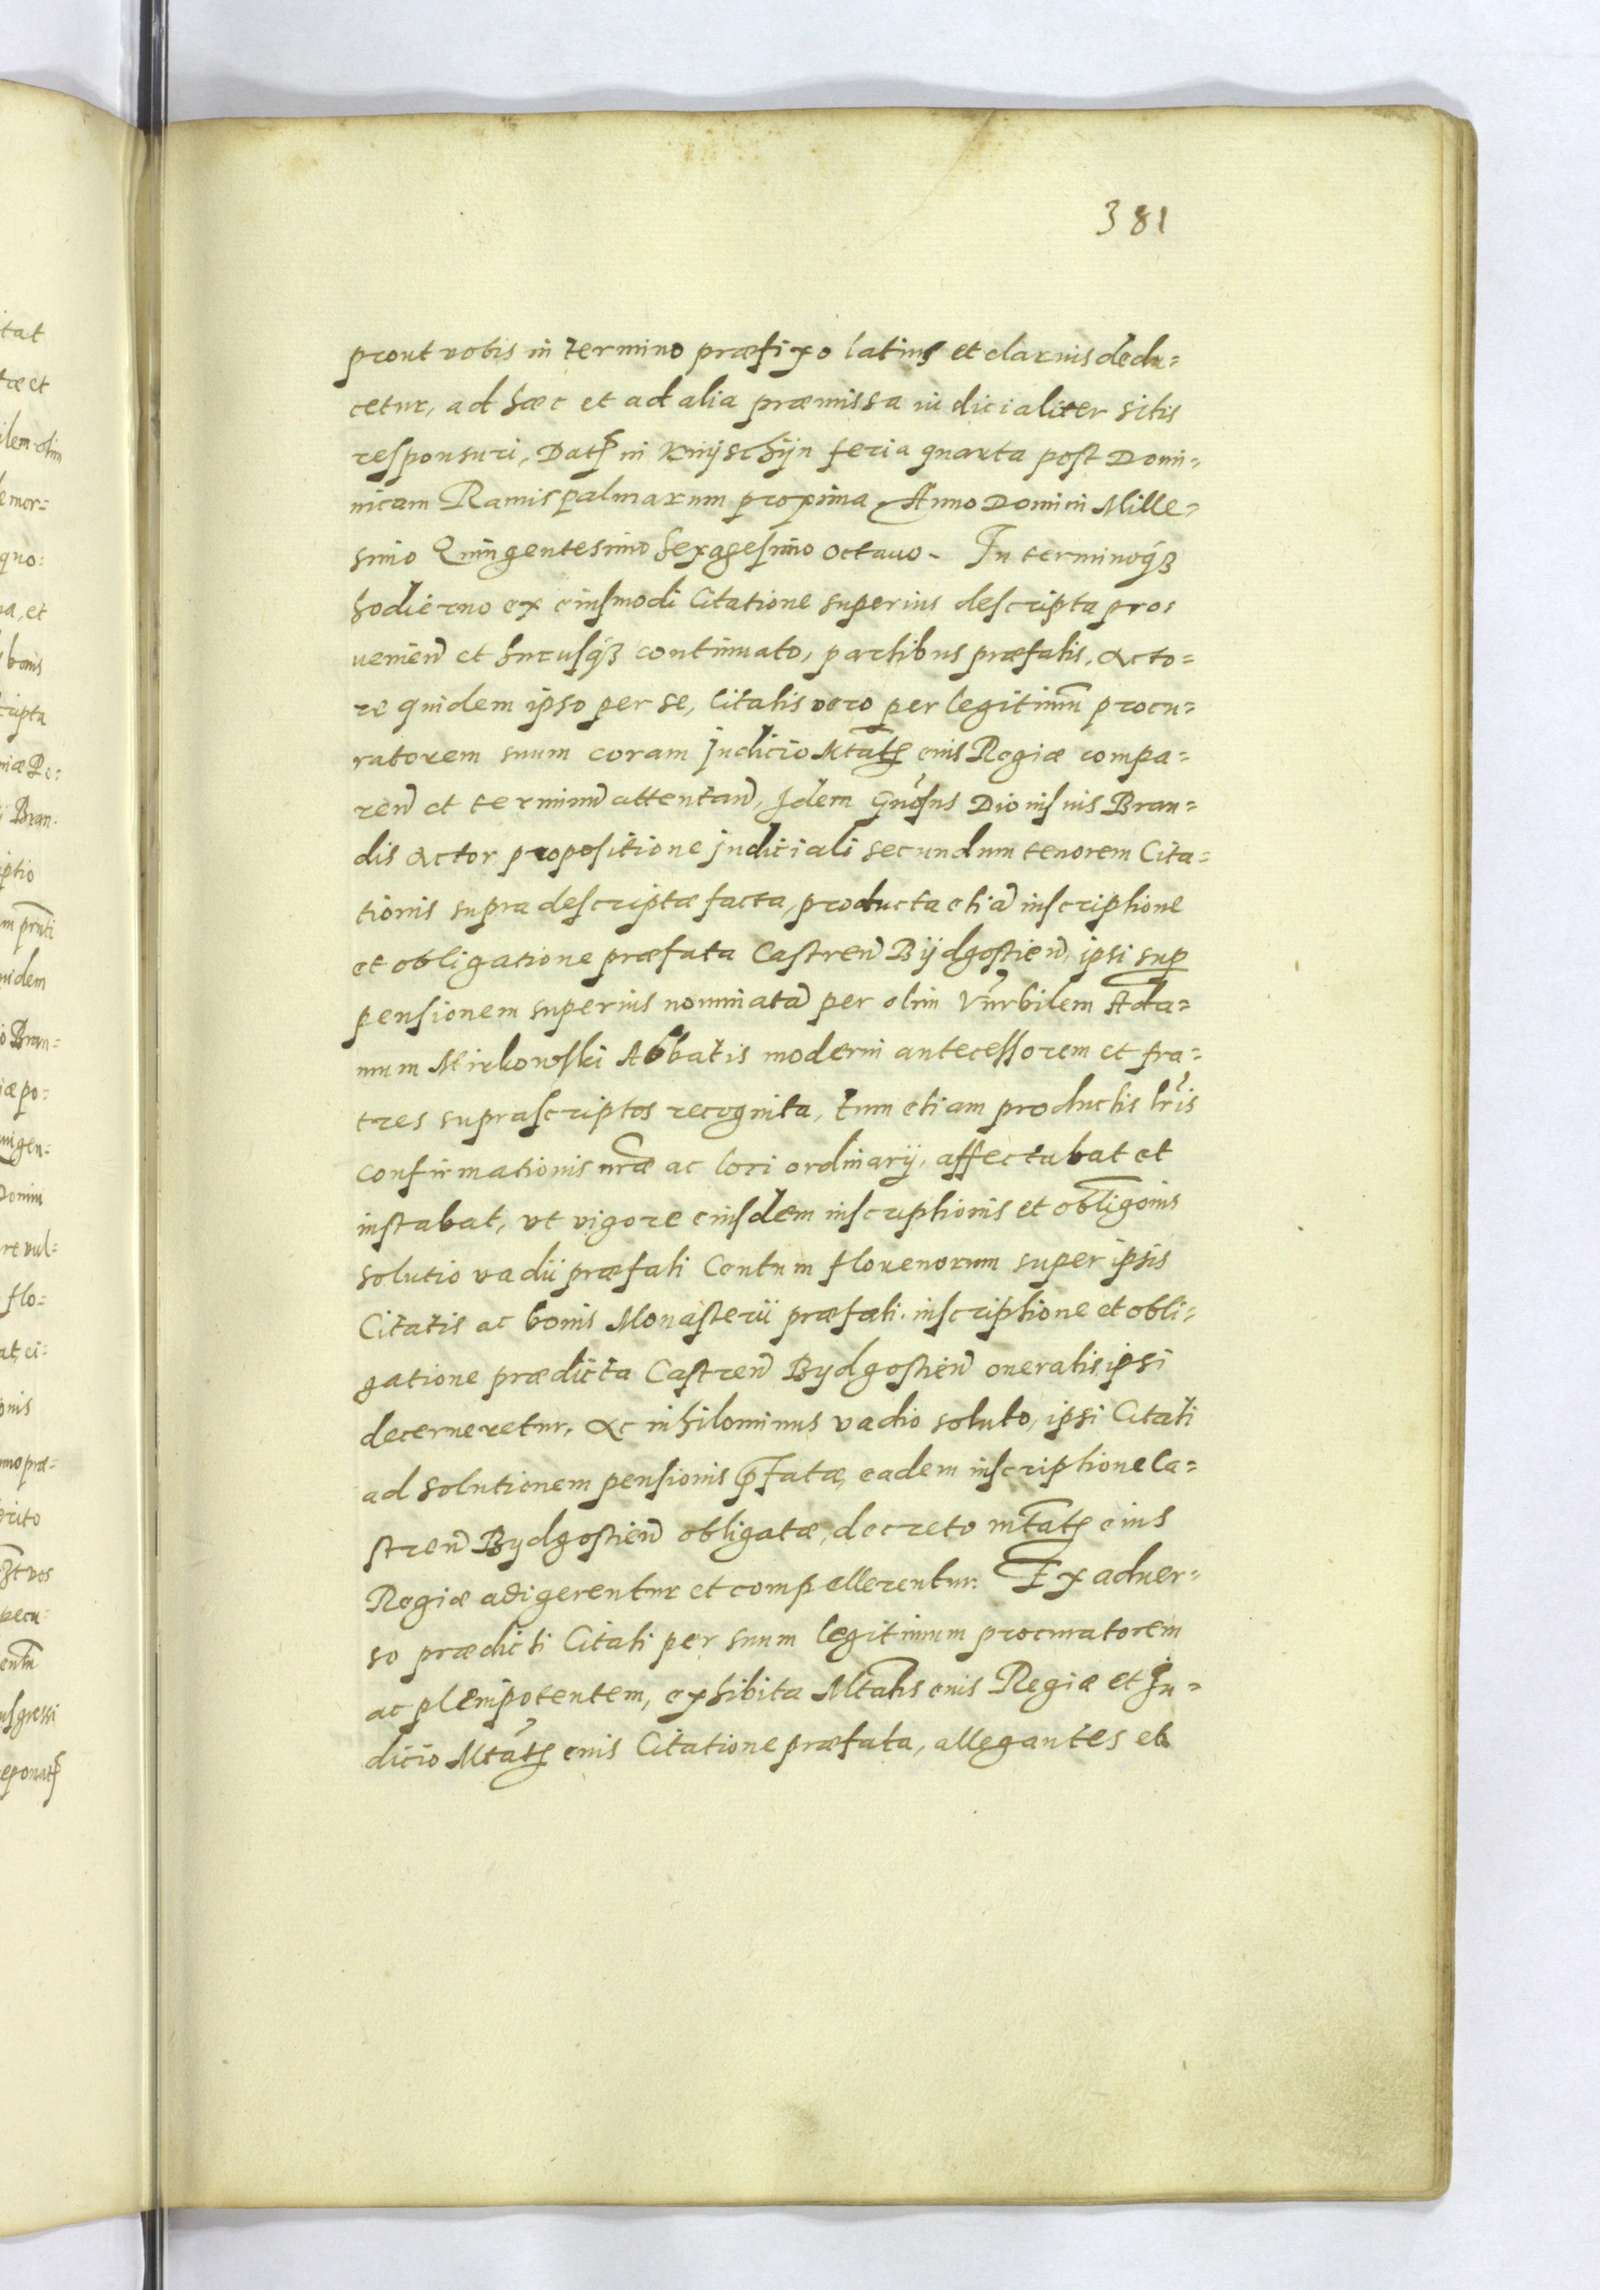 381
prout vobis in termino præfixo latius et clarius dedu=
cetur, ad hæc et ad alia præmissa iudicialiter sitis
responsuri, Datꝭ in Knijschijn feria quarta post Domi=
nicam Ramispalmarum proxima Anno Domini Mille=
simo Quingentesimo Sexagesimo octauo. In terminoqꝫ
hodierno ex eiusmodi Citatione superius descripta pro=
venieñ et hucusqꝫ continuato, partibus præfatis, Acto=
re quidem ipso per se, Citatis vero per legitimũ procu=
ratorem suum coram Judicio Mtatꝭ eius Regiæ compa=
reñ et terminũ attentañ, Idem Gñosus Dionisius Bran=
dis Actor propositione judiciali secundum tenorem Cita=
tionis supra descriptæ facta, producta etiã inscriptione
et obligatione præfata Castreñ Bijdgostieñ, ipsi sup
pensionem superius nominatã per olim Vnrbilem Ada=
mum Mirkowski Abbatis moderni antecessorem et fra=
tres suprascriptos recognita, tum etiam productis lr̃is
confirmationis nr̃æ ac loci ordinarij, affectabat et
instabat, vt vigore eiusdem inscriptionis et obligõnis
solutio vadii præfati Centum florenorum super ipsis
Citatis ac bonis Monasterii præfati, inscriptione et obli=
gatione prædicta Castreñ Bydgostieñ oneratis, ipsi
decerneretur, Ac nihilominus vadio soluto, ipsi Citati
ad solutionem pensionis p̃fatæ, eadem inscriptione Ca=
streñ Bydgostieñ obligatæ, decreto Mtatꝭ eius
Regiæ adigerentur et compellerentur. Ex aduer=
so prædicti Citati per suum legitimum procuratorem
ac plenipotentem, exhibita Mtatis eius Regiæ et Ju=
dicio Mtatꝭ eius Citatione præfata, allegantes et